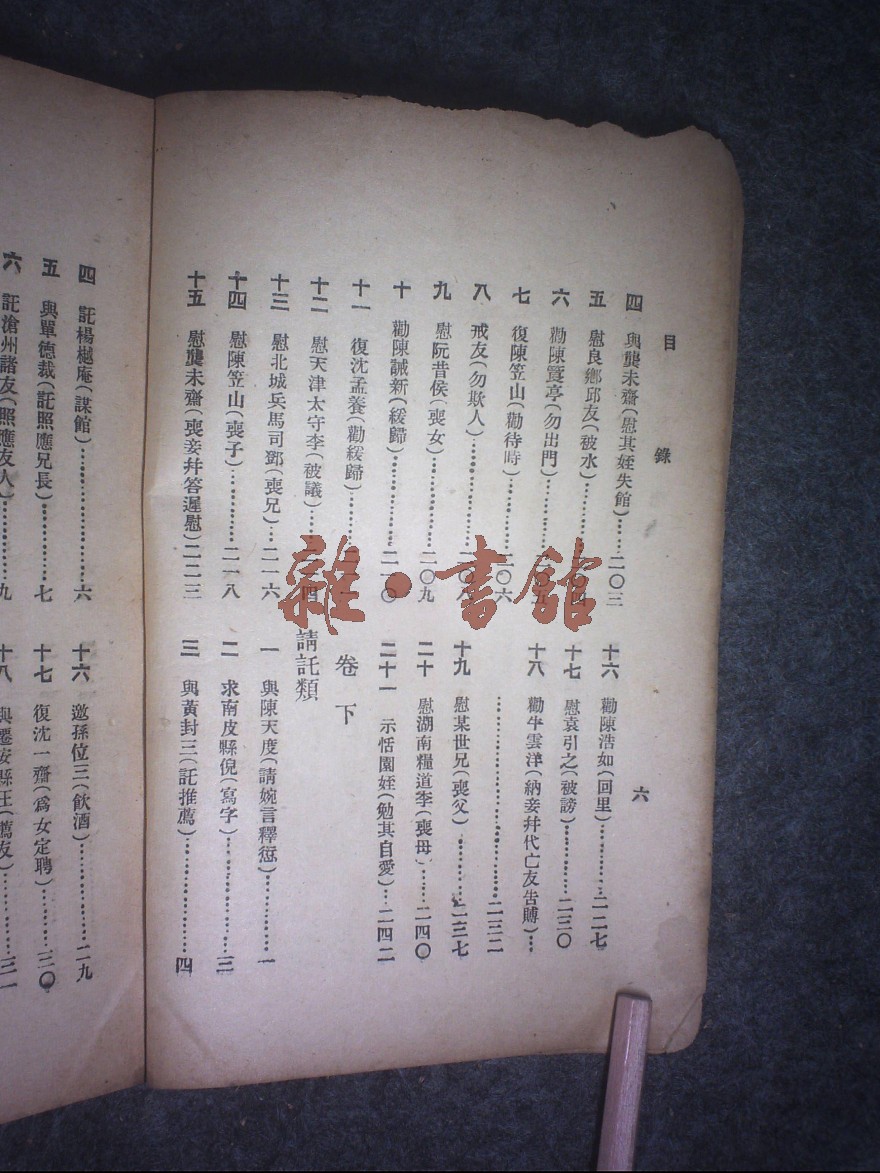 目錄
六
四 與龔未齋(慰其姪失館)……二〇三
五 慰良鄉邱友(被水)……二〇四
六 勸陳覽亭(勿出門)……二〇五
七 復陳笠山(勸待時)……二〇六
八 戒友(勿欺人)……二〇八
九 慰阮昔侯(喪女)……二〇九
十 勸陳誠新(緩歸)……二一〇
十一 復沈孟養(勸緩歸)……
十二 慰天津太守李(被議)……
十三 慰北城兵馬司鄧(喪兄)……二一六
十四 慰陳笠山(喪子)……二一八
十五 慰龔未齋(喪妾幷答遲慰)二二三
十六 勸陳浩如(回里)……二二七
十七 慰袁引之(被謗)……二三〇
十八 勸牛雲洋(納妾幷代亡友吿賻)…
……二三二
十九 慰某世兄(喪父)……二三七
二十 慰湖南糧道李(喪母)……二四〇
二十一 示恬園姪(勉其自愛)…二四二
卷下
請託類
一 與陳天度(請婉言釋愆)……一
二 求南皮縣倪(寫字)……三
三 與黃封三(託推薦)……四
四 託楊樾庵(謀館)……六
五 與單德裁(託照應兄長)……七
六 託滄州諸友(照應友人)……九
十六 邀孫位三(飲酒)……二九
十七 復沈一齋(爲女定聘)……三〇
十八 與遷安縣王(薦友)……三一
雜·書館